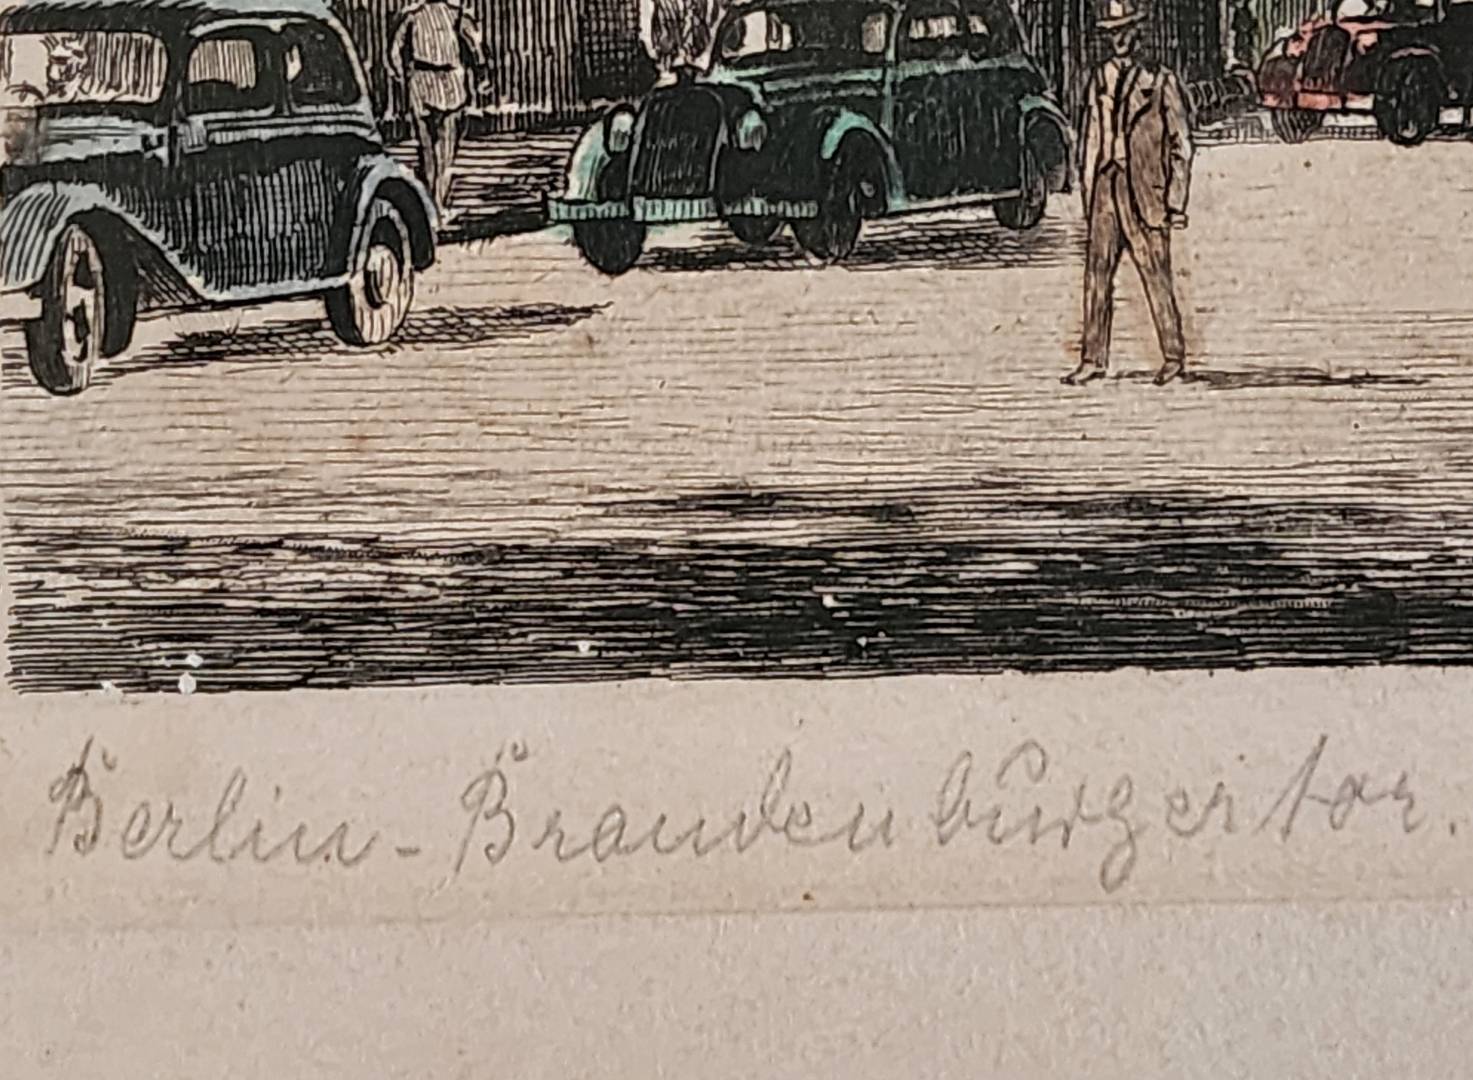 Berlin - Brandenburger tor.